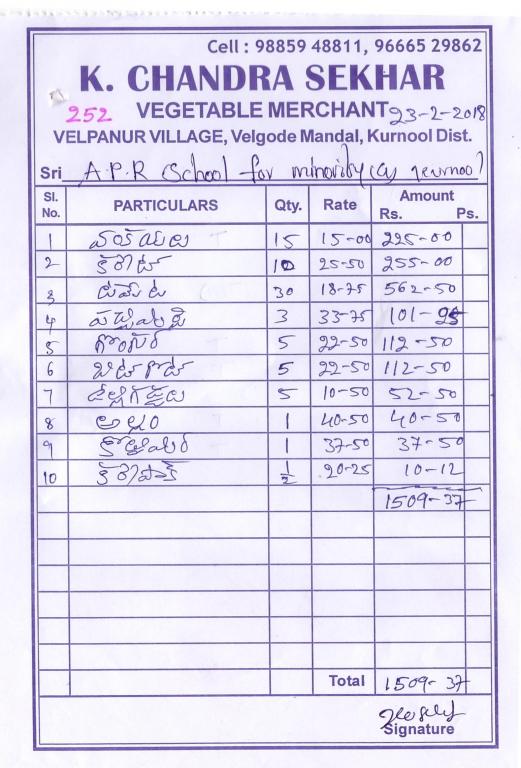 Cell : 98859 48811, 96665 29862
K. CHANDRA SEKHAR
252 VEGETABLE MERCHANT 23-2-2018
VELPANUR VILLAGE, Velgode Mandal, Kurnool Dist.
Sri A.P.R School for minority
Sl. No. PARTICULARS Qty. Rate Amount Rs. Ps.
1 వంకాయలు 15 15-00 225-00
2 కారెట్ 10 25-50 255-00
3 టమేట 30 18-75 562-50
4 3 33-75 101-25
5 గోంగూర 5 22-50 112-50
6 5 22-50 112-50
7 5 10-50 52-50
8 అల్లం 1 40-50 40-50
9 1 37-50 37-50
10 కరేపాక్ 1/2 20-25 10-12
1509-37
Total 1509-37
Signature